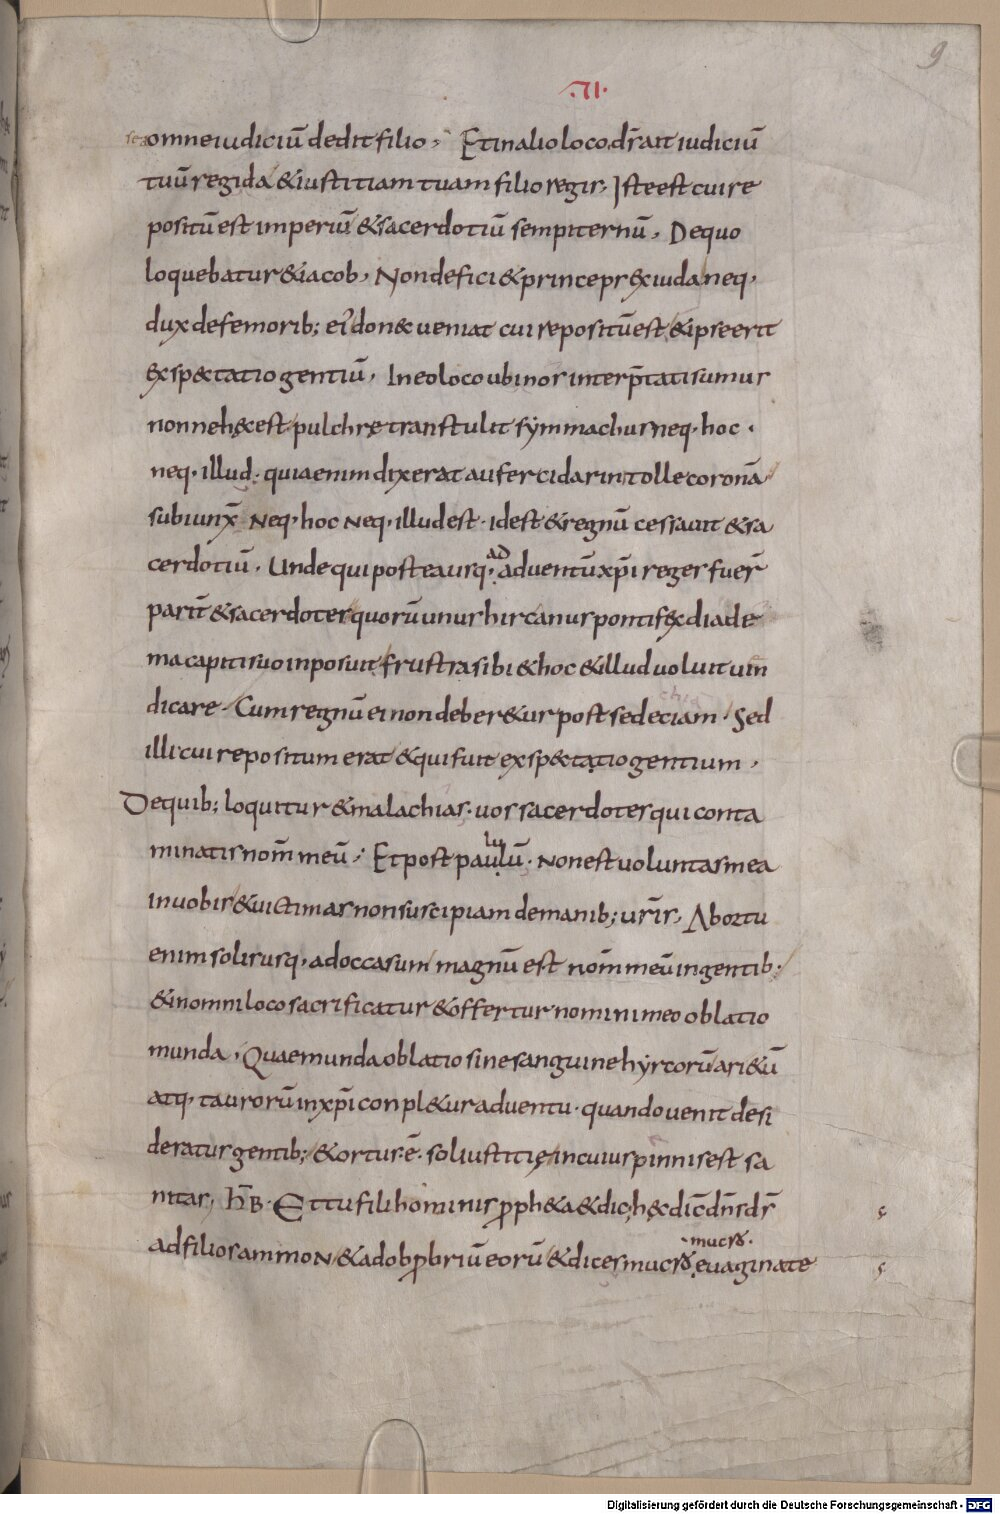 9
·VI·
sed omne iudiciū dedit filio, Et in alio loco, dr̄ait iudiciū
tuū regi da & iustitiam tuam filio regis, Iste est cui re
positū est imperiū & sacerdotiū sempiternū, De quo
loquebatur & iacob, Non defici& princeps ex iuda neq·
dux de femorib; ei' don&ueniat cui repositū est & ipse erit
exsp&tatio gentiū, In eo loco ubi nos interp̄tati sumus
nonne hęc est pulchrę transtulit symmachus neq· hoc ·
neq· illud· quia enim dixerat aufer cidarin tolle coronā
subiunx̄ Neq· hoc Neq· illud est · idest & regnū cessauit & sa
cerdotiū, Unde qui postea usq· AD aduentū xp̄i reges fuer̄
parit̄ & sacerdotes quorū unus hircanus pontifex diade
ma capiti suo inposuit frustra sibi & hoc & illud uoluit uin
dicare · Cum regnū ei non deber&ur post sedeciam · Sed
illi cui repositum erat & qui fuit exsp&tatio gentium ,
De quib; loquitur & malachias · uos sacerdotes qui conta
minatis nom̄ meū , Et post paululū lu · Non est uoluntas mea
in uobis & uictimas non suscipiam de manib; ur̄is, Ab ortu
enim solis usq· ad occasum magnū est nom̄ meū in gentib·
& in omni loco sacrificatur & offertur nomini meo oblatio
munda , Quae munda oblatio sine sanguine hyrcorū ari&ū
atq· taurorū in xp̄i conpl&ur aduentu · quando uenit desi
deratus gentib; & ortus·ē· sol iustitię in cuius pinnis est sa
nitas, h̄B· Et tu fili hominis proph&a & dic, hęc dic̄ dn̄s ds̄
ad filios ammoN & ad obprobriū eorū & dices mucro mucro· euaginate
Digitalisierung gefördert durch die Deutsche Forschungsgemeinschaft · DFG